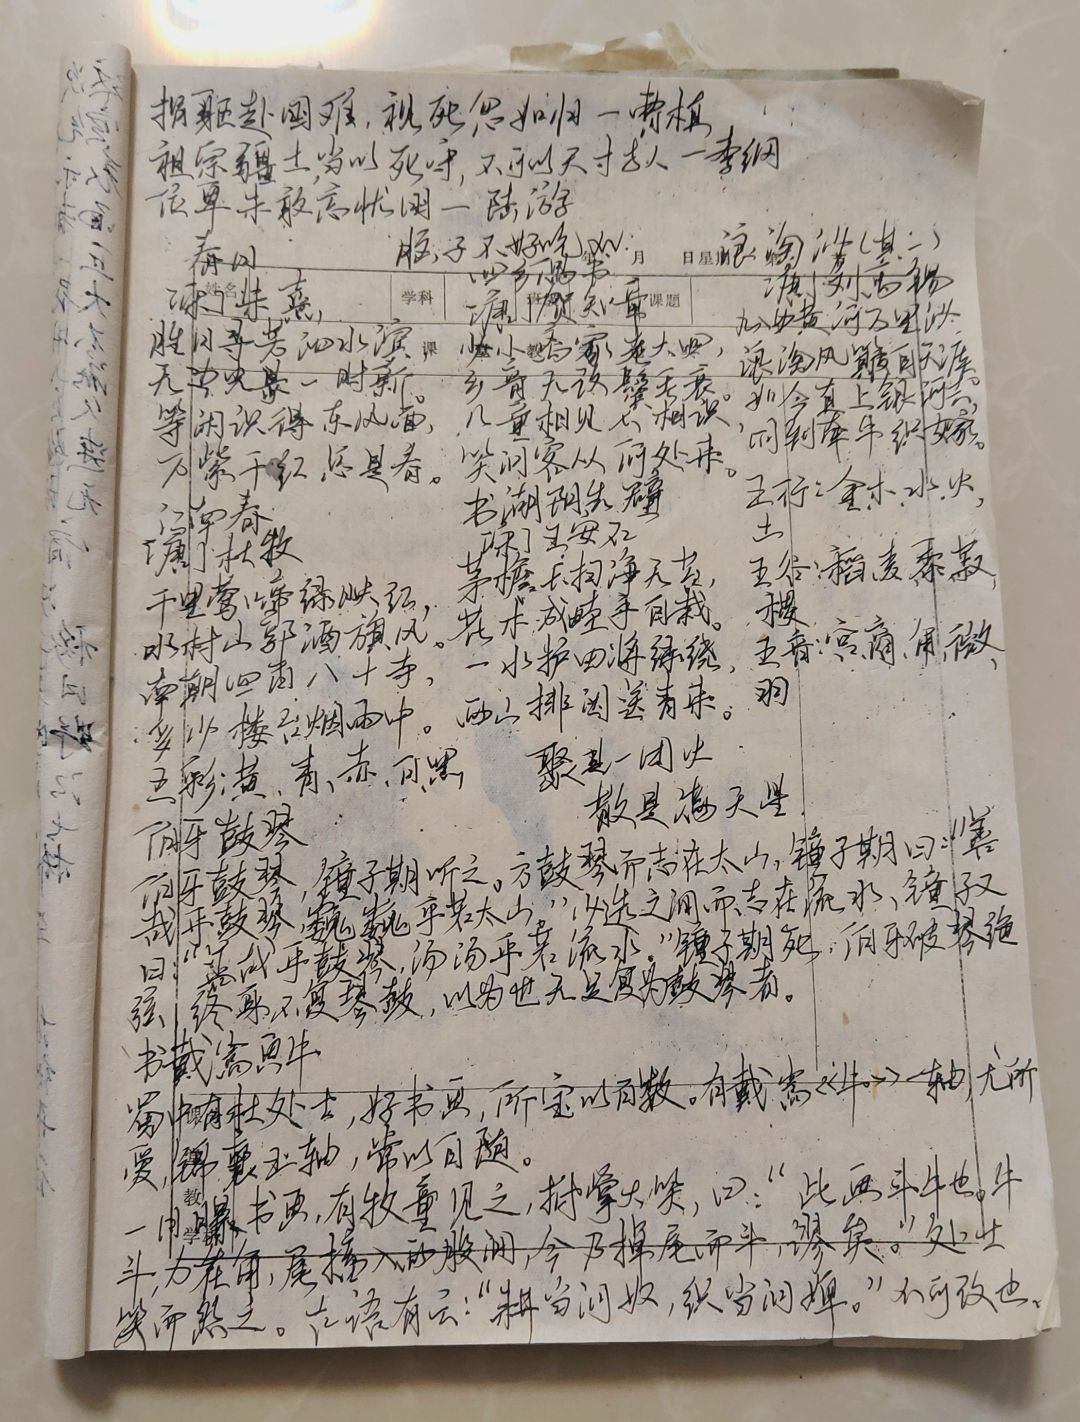 捐躯赴国难，视死忽如归一曹植
祖宗疆土，当以死守，不可以尺寸与人一李纲
位卑未敢忘忧国一陆游
月 日 星期
学科
课题
课
教
春日
宋 朱熹
胜日寻芳泗水滨，
无边光景一时新。
等闲识得东风面，
万紫千红总是春。
江南春
唐 杜牧
千里莺啼绿映红，
水村山郭酒旗风。
南朝四百八十寺，
多少楼台烟雨中。
五彩：黄、青、赤、白、黑
回乡偶书
唐 贺知章
少小离家老大回，
乡音无改鬓毛衰。
儿童相见不相识，
笑问客从何处来。
书湖阴先生壁
宋 王安石
茅檐长扫净无苔，
花木成畦手自栽。
一水护田将绿绕，
两山排闼送青来。
浪淘沙（其一）
唐 刘禹锡
九曲黄河万里沙，
浪淘风簸自天涯。
如今直上银河去，
同到牵牛织女家。
五行：金、木、水、火、
土
五谷：稻、麦、黍、菽、
稷
五音：宫、商、角、徵、
羽
聚是一团火
散是满天星
伯牙鼓琴
伯牙鼓琴，锺子期听之。方鼓琴而志在太山，锺子期曰：“善
哉乎鼓琴，巍巍乎若太山。”少选之间而志在流水，锺子又
曰：“善哉乎鼓琴，汤汤乎若流水。”锺子期死，伯牙破琴绝
弦，终身不复琴鼓，以为世无足复为鼓琴者。
书戴嵩画牛
蜀中有杜处士，好书画，所宝以百数。有戴嵩《牛》一轴，尤所
爱，锦囊玉轴，常以自随。
一日曝书画，有牧童见之，拊掌大笑，曰：“此画斗牛也。牛
斗，力在角，尾搐入两股间，今乃掉尾而斗，谬矣。”处士
笑而然之。古语有云：“耕当问奴，织当问婢。”不可改也。